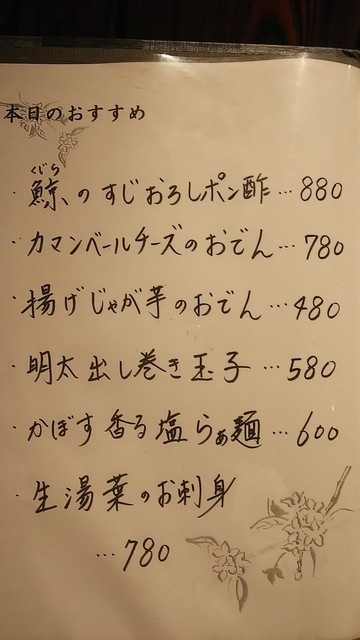 本日のおすすめ
くじら
・鯨のすじおろしポン酢…880
・カマンベールチーズのおでん…780
・揚げじゃが芋のおでん…480
・明太出し巻き玉子…580
・かぼす香る塩らぁ麺…600
・生湯葉のお刺身
…780